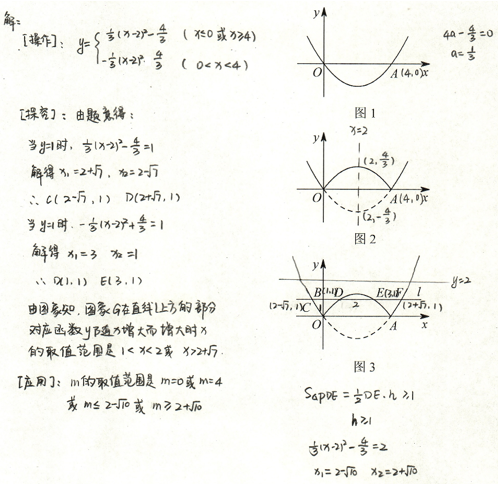 解:
[操作]: y={ 1/3(x-2)²-4/3 (x≤0或x≥4)
-1/3(x-2)² 4/3 (0<x<4)
[探究]: 由题意得:
当y=1时, 1/3(x-2)²-4/3=1
解得 x₁=2+√7, x₂=2-√7
∴ C(2-√7, 1) D(2+√7, 1)
当y=1时, -1/3(x-2)²+4/3=1
解得 x₁=3 x₂=1
∴ D(1,1) E(3,1)
由图象知, 图象G在直线l上方的部分
对应函数y随x增大而增大时x
的取值范围是1<x<2或x>2+√7.
[应用]: m的取值范围是 m=0或m=4
或m≤2-√10或m≥2+√10
y
O
A(4,0)x
图1
4a-4/3=0
a=1/3
x=2
y
(2,4/3)
O
A(4,0)x
(2,-4/3)
图2
y
y=2
B(1,1)D E(3,1)F l
(2-√7,1)C 2 (2+√7,1)
O A x
图3
S△PDE=1/2DE·h≥1
h≥1
1/3(x-2)²-4/3=2
x₁=2-√10 x₂=2+√10